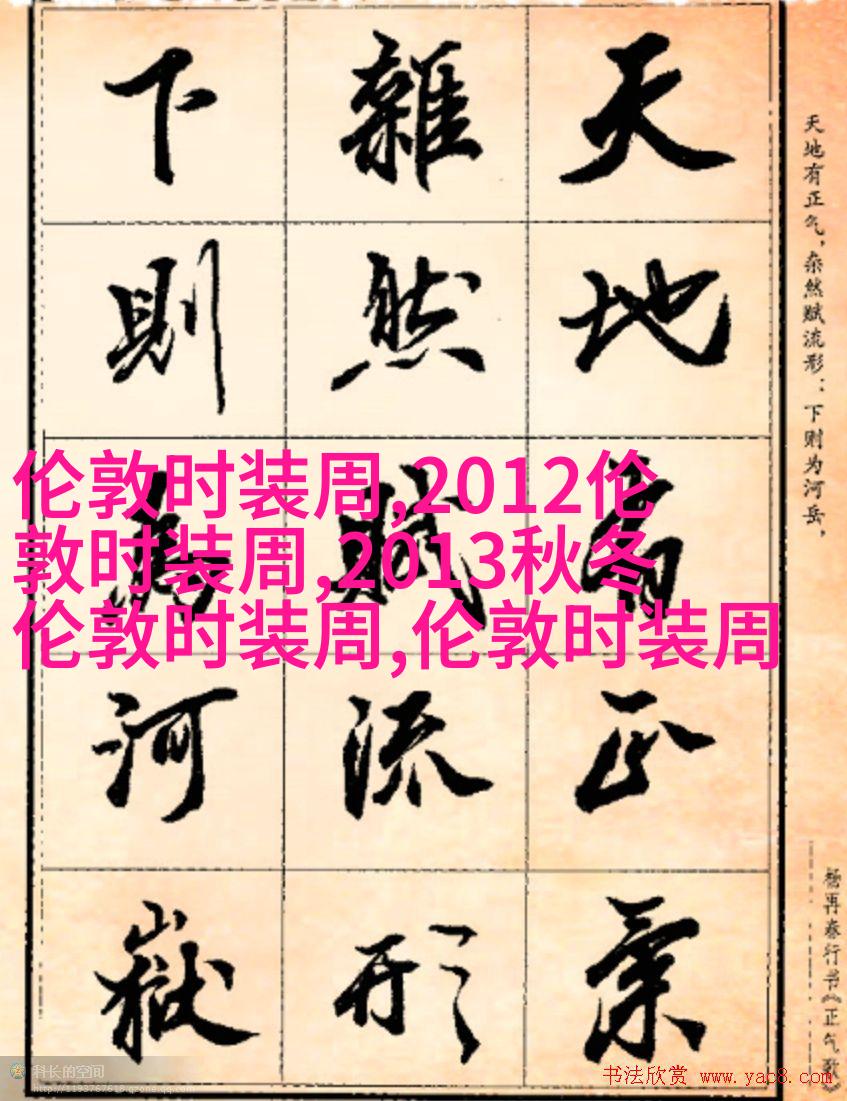 天地有正氣
雜然賦流形
下則為河嶽
天地有正气，杂然赋流形：下则为河岳，
杨再春行书《正气歌》
伦敦时装周,2012伦
敦时装周,2013秋冬
伦敦时装周,伦敦时装周
科长的空间
http://1193767618.qzone.qq.com
书法欣赏 www.yac8.com